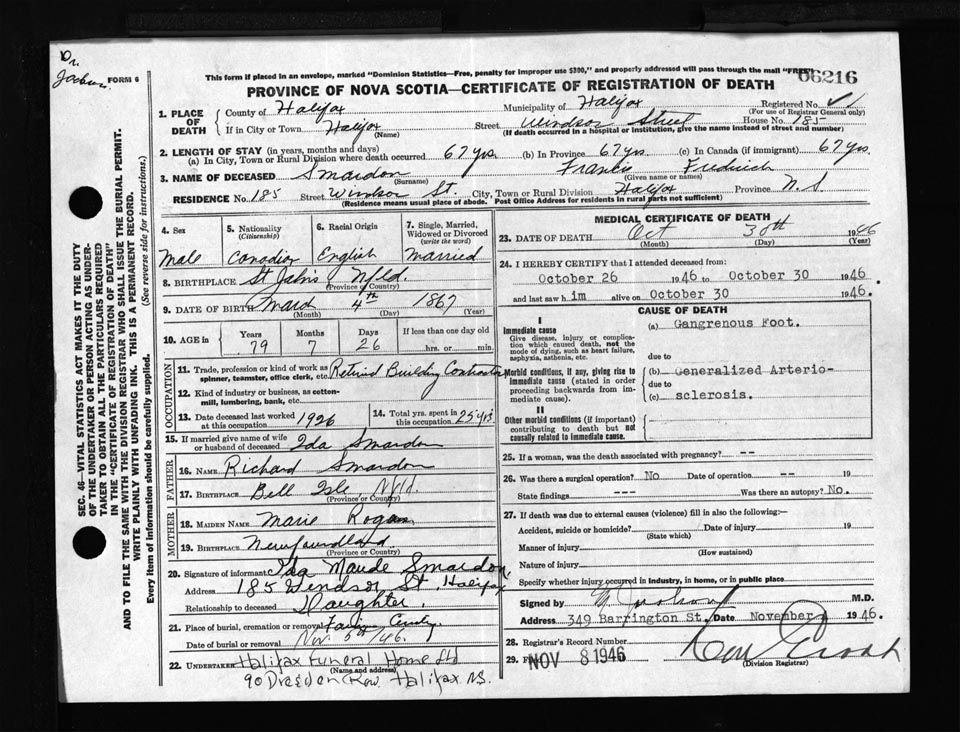 Dr.
FORM 6
This form if placed in an envelope, marked "Dominion Statistics—Free, penalty for improper use $300," and properly addressed will pass through the mail "FREE"
66216
PROVINCE OF NOVA SCOTIA—CERTIFICATE OF REGISTRATION OF DEATH
1. PLACE OF DEATH
County of Halifax Municipality of Halifax Registered No.
(For use of Registrar General only)
If in City or Town Halifax Street Windsor Street House No. 185
(Name) (If death occurred in a hospital or institution, give the name instead of street and number)
2. LENGTH OF STAY (in years, months and days)
(a) In City, Town or Rural Division where death occurred 67 yrs. (b) In Province 67 yrs (c) In Canada (if immigrant) 67 yrs
3. NAME OF DECEASED Smardon Francis Fredrick
(Surname) (Given name or names)
RESIDENCE No. 185 Street Windsor St. City, Town or Rural Division Halifax Province N.S.
(Residence means usual place of abode. Post Office Address for residents in rural parts not sufficient)
4. Sex
Male
5. Nationality (Citizenship)
Canadian
6. Racial Origin
English
7. Single, Married, Widowed or Divorced (write the word)
Married
8. BIRTHPLACE St Johns Nfld.
(Province or Country)
9. DATE OF BIRTH March 4th 1867
(Month) (Day) (Year)
10. AGE in
Years Months Days If less than one day old
79 7 26 hrs. or min.
OCCUPATION
11. Trade, profession or kind of work as spinner, teamster, office clerk, etc. Retired Building Contractor
12. Kind of industry or business, as cotten-mill, lumbering, bank, etc.
13. Date deceased last worked at this occupation 1926
14. Total yrs. spent in this occupation 25 yrs.
15. If married give name of wife or husband of deceased Ida Smardon
FATHER
16. NAME Richard Smardon
17. BIRTHPLACE Bell Isle Nfld.
(Province or Country)
MOTHER
18. MAIDEN NAME Marie Rogan
19. BIRTHPLACE Newfoundland.
(Province or Country)
20. Signature of informant Ida Maude Smardon
Address 185 Windsor St. Halifax
Relationship to deceased Daughter.
21. Place of burial, cremation or removal
Date of burial or removal Nov. 5th/46.
22. UNDERTAKER Halifax Funeral Home Ltd
(Name and address)
90 Dresden Row. Halifax N.S.
MEDICAL CERTIFICATE OF DEATH
23. DATE OF DEATH Oct 30th 1946
(Month) (Day) (Year)
24. I HEREBY CERTIFY that I attended deceased from:
October 26 1946 to October 30 1946
and last saw him alive on October 30 1946.
CAUSE OF DEATH
I
Immediate cause
Give disease, injury or complication which caused death, not the mode of dying, such as heart failure, asphyxia, asthenia, etc.
(a) Gangrenous Foot.
due to
Morbid conditions, if any, giving rise to immediate cause (stated in order proceeding backwards from immediate cause).
(b) Generalized Arterio-
due to
(c) sclerosis.
II
Other morbid conditions (if important) contributing to death but not causally related to immediate cause.
25. If a woman, was the death associated with pregnancy? --
26. Was there a surgical operation? No Date of operation -- 19
State findings --- Was there an autopsy? No.
27. If death was due to external causes (violence) fill in also the following:—
Accident, suicide or homicide? Date of injury 19
(State which)
Manner of injury
(How sustained)
Nature of injury
Specify whether injury occurred in industry, in home, or in public place
Signed by M.D.
Address 349 Barrington St. Date November 1946.
28. Registrar's Record Number
29. NOV 8 1946
(Division Registrar)
SEC. 46—VITAL STATISTICS ACT MAKES IT THE DUTY
OF THE UNDERTAKER OR PERSON ACTING AS UNDER-
TAKER TO OBTAIN ALL THE PARTICULARS REQUIRED
IN THE "CERTIFICATE OF REGISTRATION OF DEATH"
AND TO FILE THE SAME WITH THE DIVISION REGISTRAR WHO SHALL ISSUE THE BURIAL PERMIT.
WRITE PLAINLY WITH UNFADING INK. THIS IS A PERMANENT RECORD.
Every item of information should be carefully supplied. (See reverse side for instructions.)